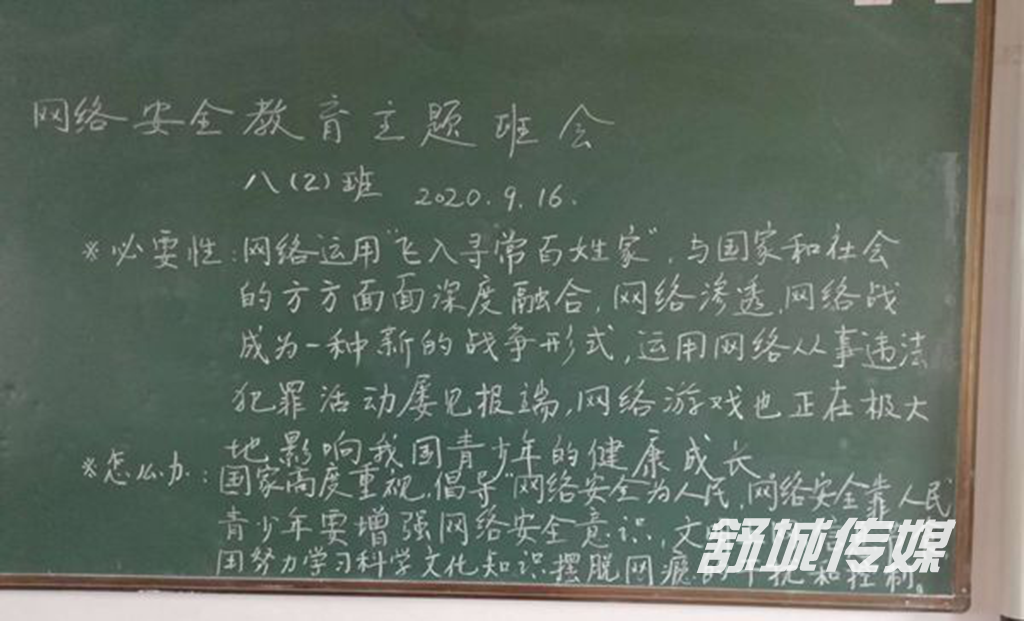 网络安全教育主题班会
八(2)班 2020.9.16.
*必要性:网络运用"飞入寻常百姓家",与国家和社会
的方方面面深度融合,网络渗透,网络战
成为一种新的战争形式,运用网络从事违法
犯罪活动屡见报端,网络游戏也正在极大
地影响我国青少年的健康成长
*怎么办:国家高度重视,倡导"网络安全为人民,网络安全靠人民
青少年要增强网络安全意识,文
用努力学习科学文化知识摆脱网瘾的干扰和控制。
舒城传媒